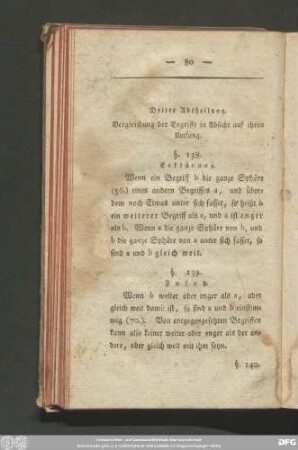 — 80 —
Dritte Abtheilung.
Vergleichung der Begriffe in Absicht auf ihren
Umfang.
§. 138.
Erklärung.
Wenn ein Begriff b die ganze Sphäre
(36.) eines andern Begriffes a, und über-
dem noch Etwas unter sich fasset, so heißt b
ein weiterer Begriff als a, und a ist enger
als b. Wenn a die ganze Sphäre von b, und
b die ganze Sphäre von a unter sich fasset, so
sind a und b gleich weit.
§. 139.
Zusatz.
Wenn b weiter oder enger als a, oder
gleich weit damit ist, so sind a und b einstim-
mig (70.). Von entgegengesetzten Begriffen
kann also keiner weiter oder enger als der an-
dere, oder gleich weit mit ihm seyn.
§. 140.